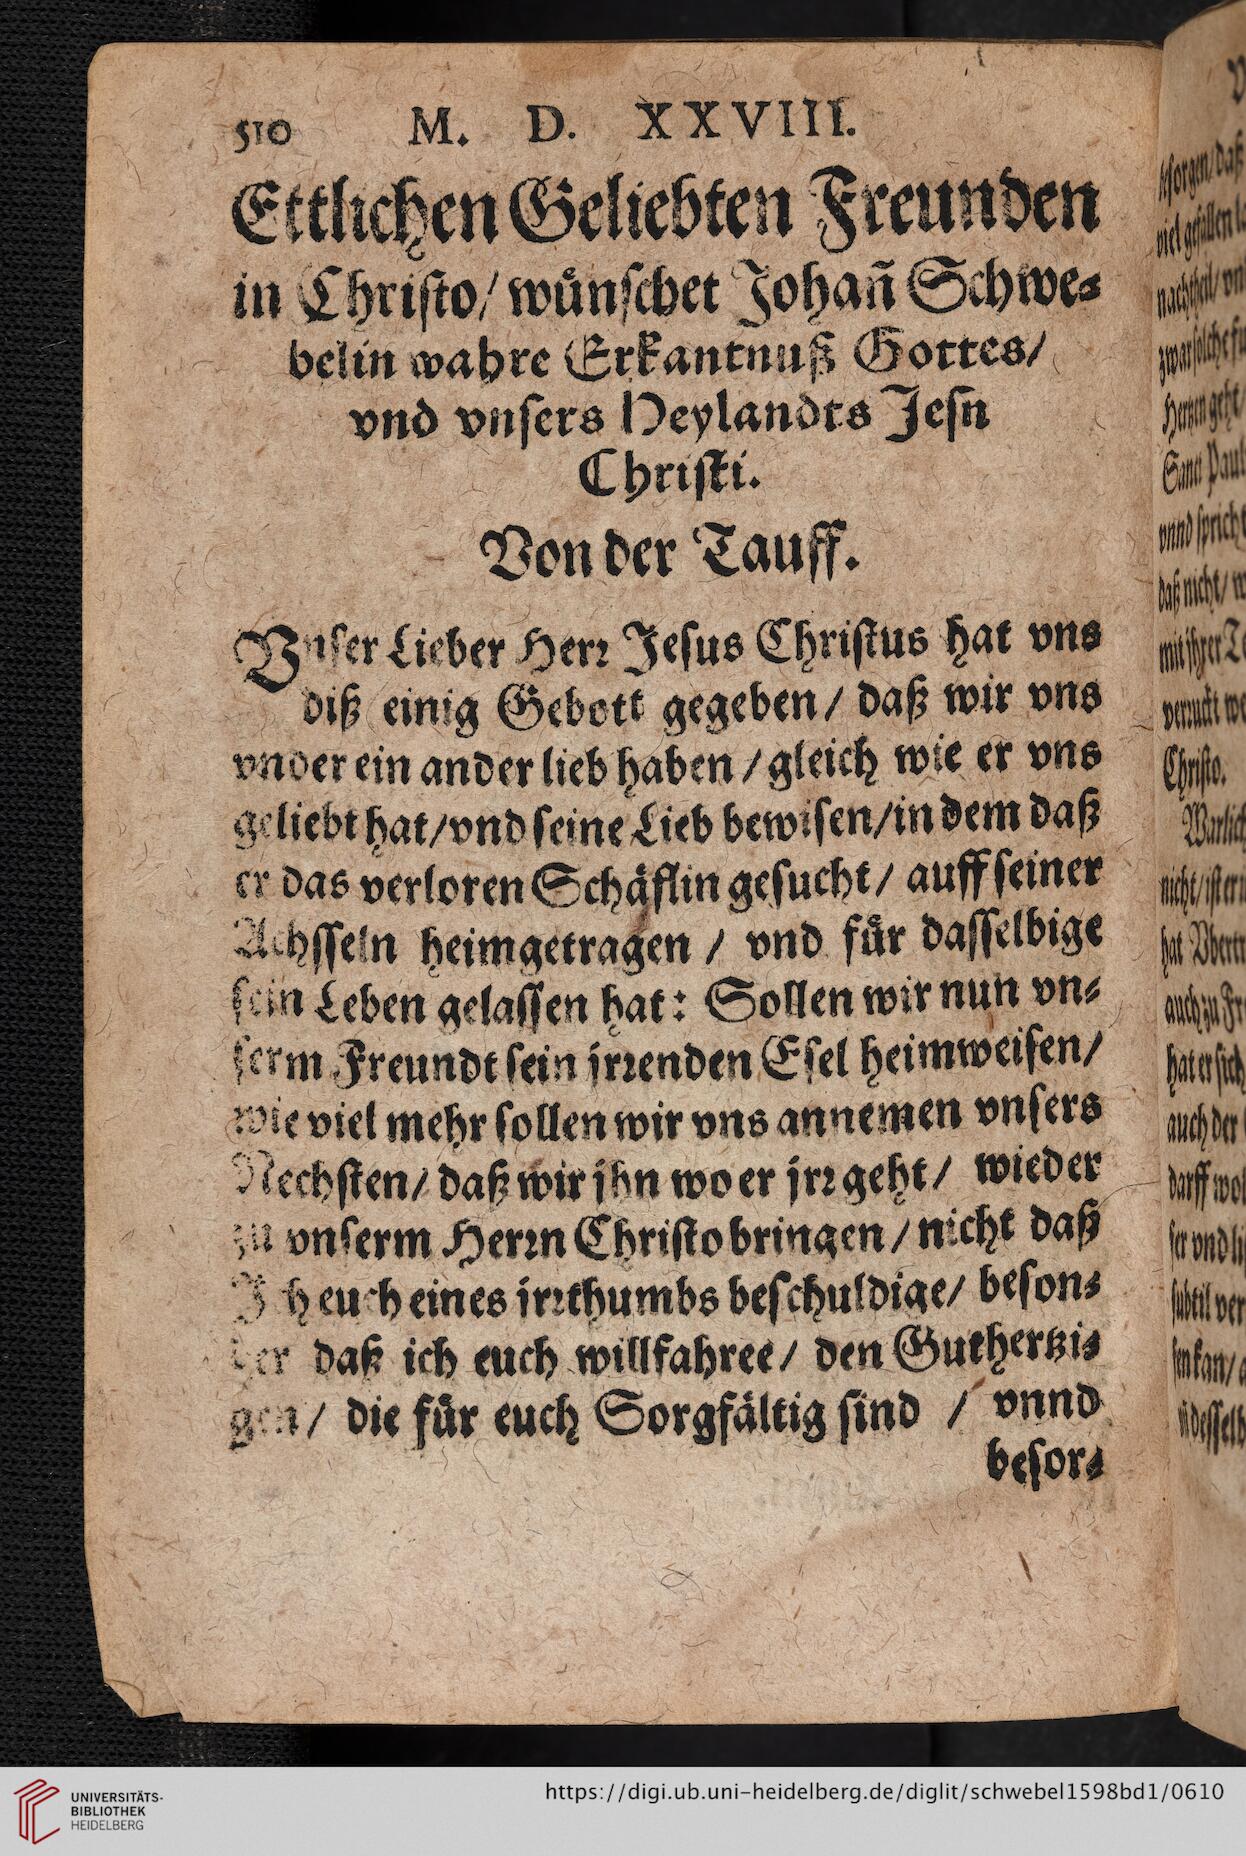 510 M. D. XXVIII.
Ettlichen Geliebten Freunden
in Christo/ wünschet Johañ Schwe-
belin wahre Erkantnuß Gottes/
vnd vnsers Heylandts Jesu
Christi.
Von der Tauff.
Vnser Lieber Herr Jesus Christus hat vns
diß einig Gebott gegeben/ daß wir vns
vnder ein ander lieb haben/ gleich wie er vns
geliebt hat/ vnd seine Lieb bewisen/ in dem daß
er das verloren Schäflin gesucht/ auff seiner
Achsseln heimgetragen/ vnd für dasselbige
sein Leben gelassen hat: Sollen wir nun vn-
serm Freundt sein jrrenden Esel heimweisen/
wie viel mehr sollen wir vns annemen vnsers
Nechsten/ daß wir jhn wo er jrr geht/ wieder
zu vnserm Herrn Christo bringen/ nicht daß
Ich euch eines jrrthumbs beschuldige/ beson-
der daß ich euch willfahree/ den Guthertzi-
gen/ die für euch Sorgfältig sind / vnnd
besor-
sorgen/ daß
viel gefallen
nachtheil/
zwar solche
Hertzen geht/
Sanct Paul
vnnd spricht
daß nicht/
mit jhrer
verruckt
Christo.
Warlich
nicht/ ist er
hat
auch zu
hat er sich
auch der
darff
ser vnd
subtil
sen kan/
UNIVERSITÄTS-
BIBLIOTHEK
HEIDELBERG
https://digi.ub.uni-heidelberg.de/diglit/schwebel1598bd1/0610